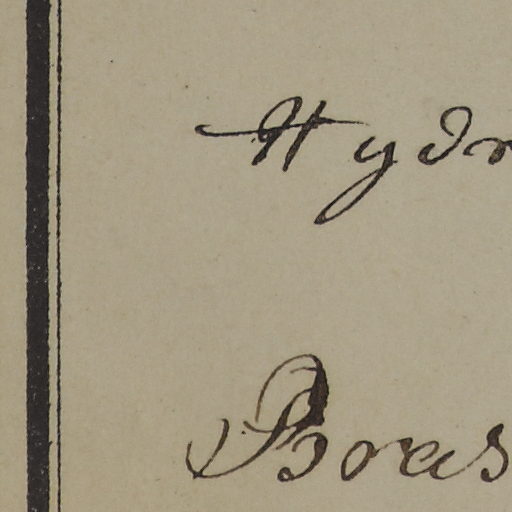 Hydr
Boras